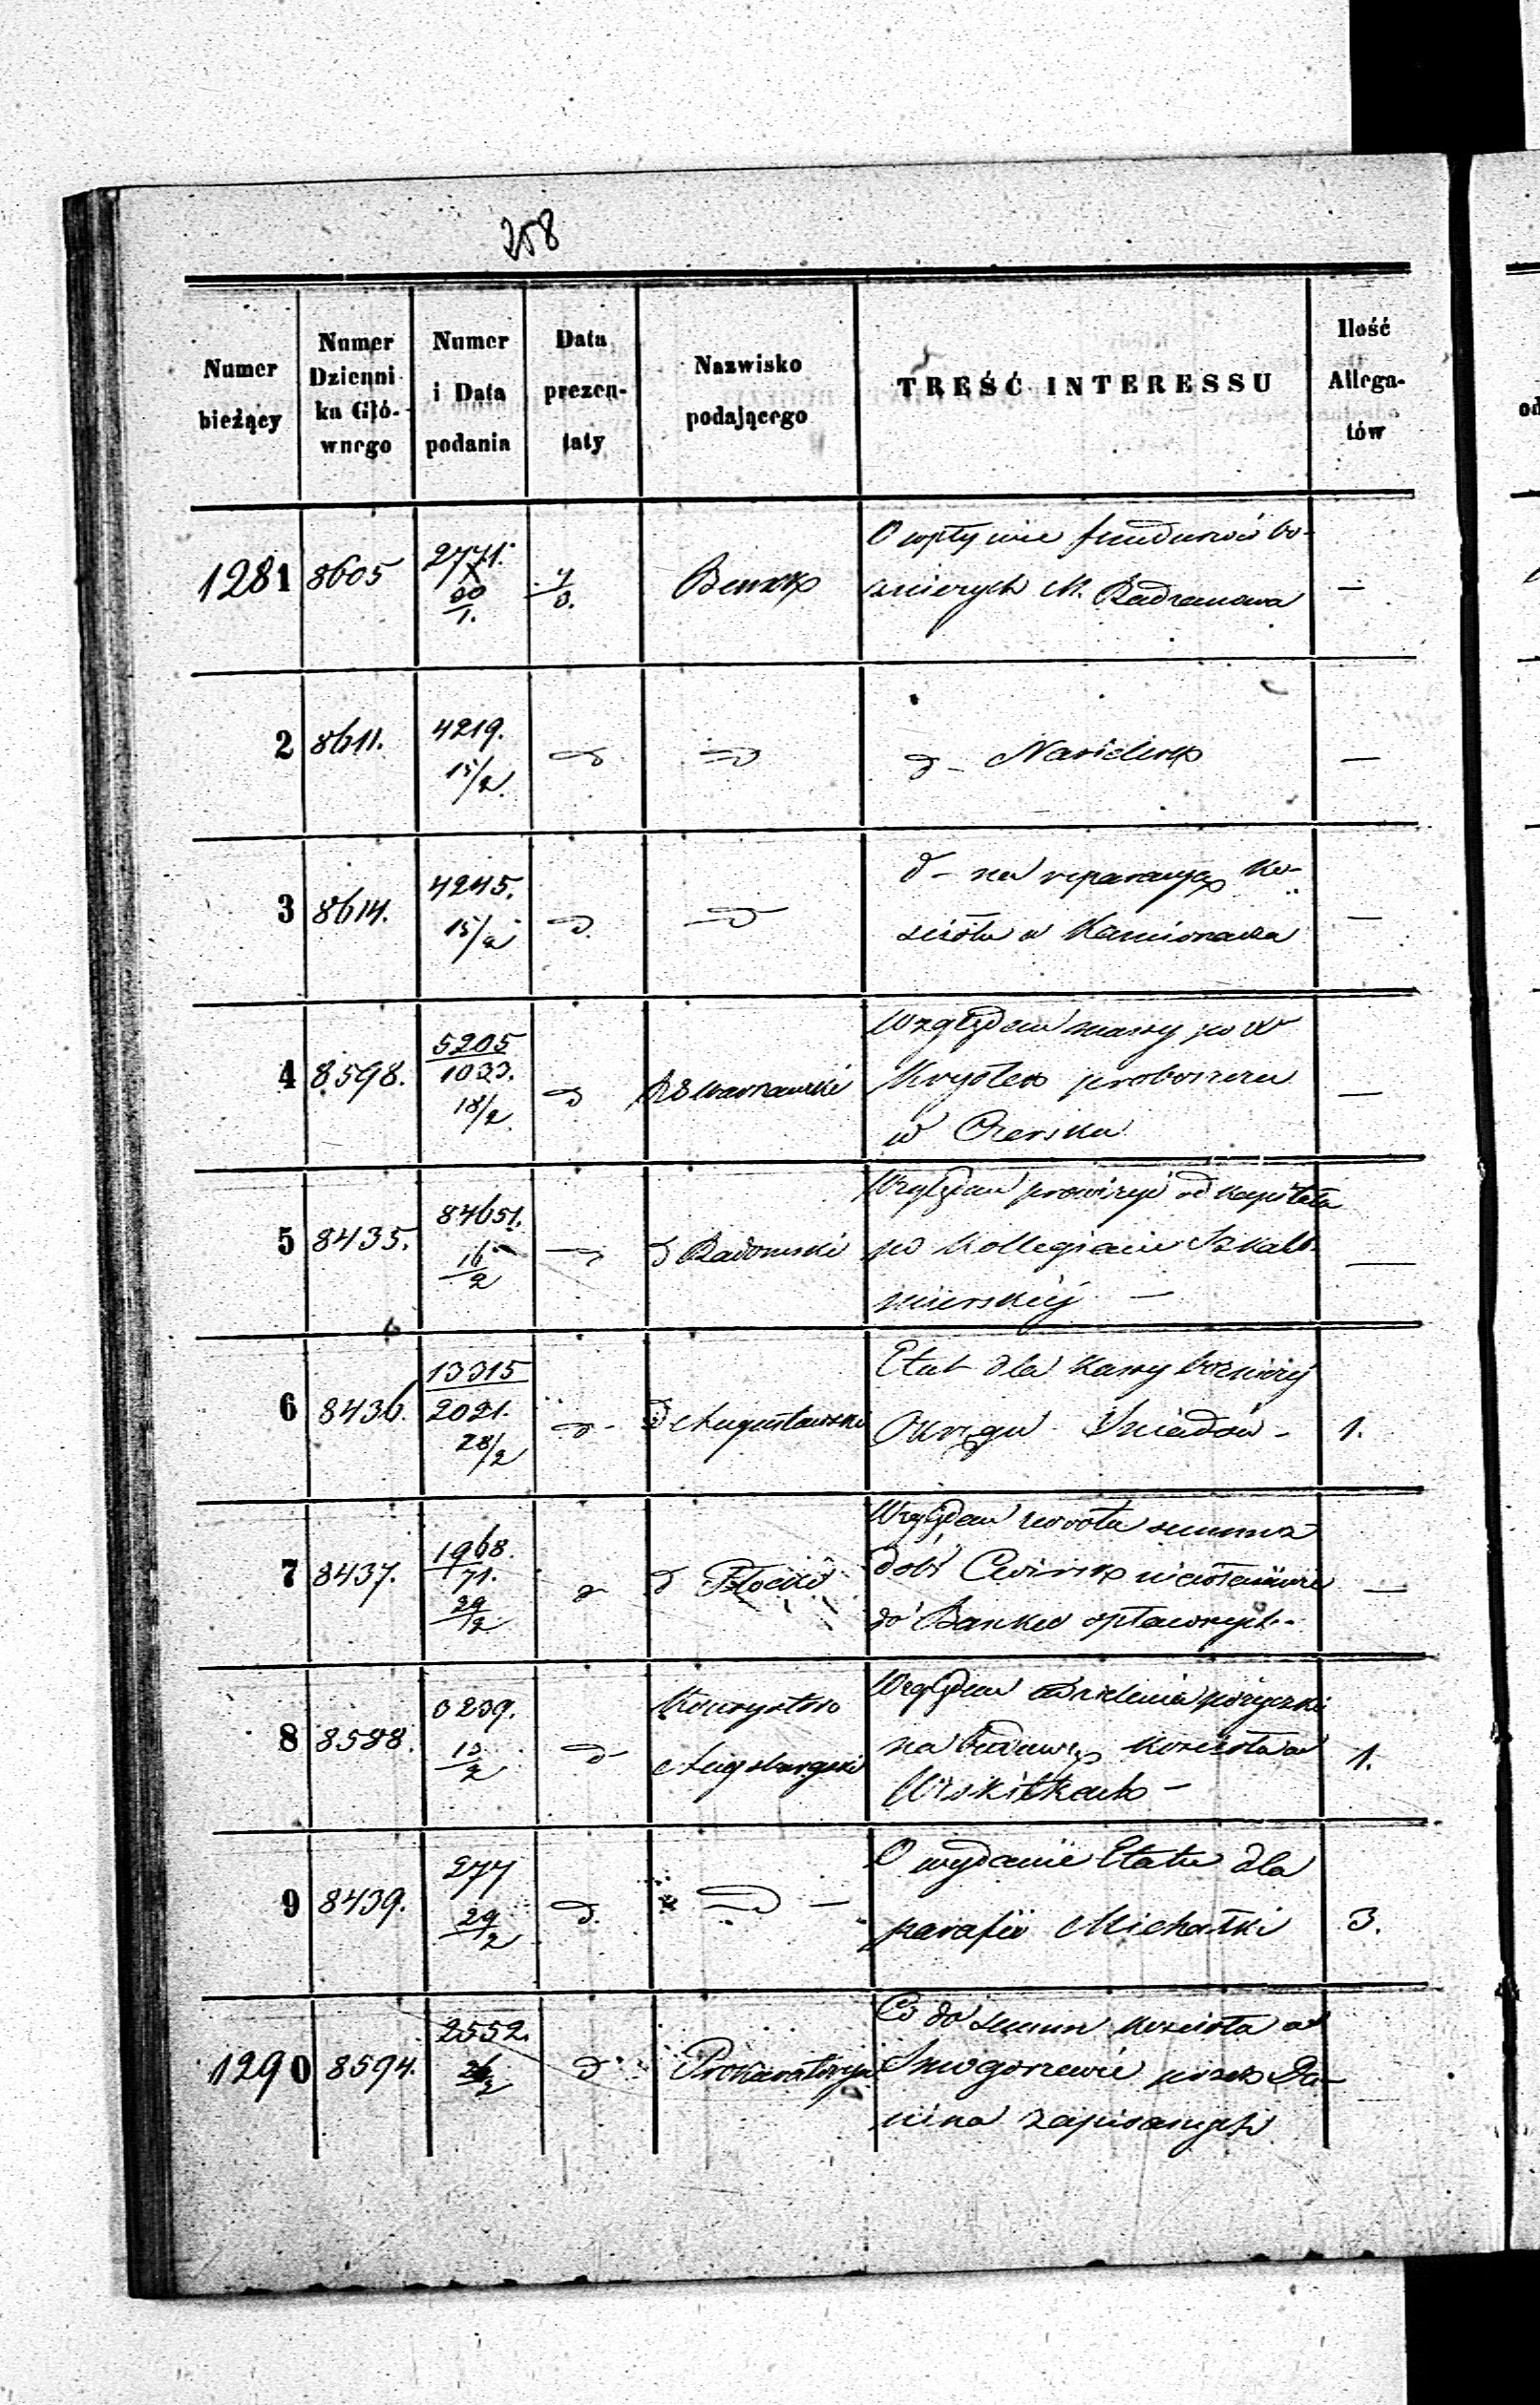 258
Numer bieżący
Numer Dzienni- ka Głó- wnego
Numer i Data podania
Data prezen- taty
Nazwisko podającego
TREŚĆ INTERESSU
Ilość Allega- tów
1281 8605 2771. 30/1. 7/3. Bank O wpływie funduszów bó-
źniczych M. Radzanowa —
2 8611. 4219. 15/2. d d d – Nasielsk —
3 8614. 4245. 15/2 d. d d – na reparacyą Ko-
ścioła w Kamionacza —
4 8598. 5205/1033. 18/2. d RG Warszawski Względem massy po X
Krystek proboszczu —
w Czersku
5 8435. 84651. 16/2 d d Radomski Względem prowizyi od kapitału
po Kollegiacie Skalb-
mierskiej — —
6 8436. 13315/2021. 28/2 d d Augustowski Etat dla kassy bożniczej
Okręgu Śniadów – 1.
7 8437. 1968/71. 29/2 d d Płocki Względem zwrotu summ z
dóbr
do Banku —
8 8588. 3239. 13/2 d Konsystorz
Augsburgski Względem udzielenia pożyczki
na budowę kościoła w
Wiskitkach – 1.
9 8439. 277 29/2 d. d – O wydanie Etatu dla
parafii Michałki 3.
1290 8594. 2552. 26/2 d Prokuratorya Co do summ kościoła w
Smogorzewie przez Da-
nina zapisanych